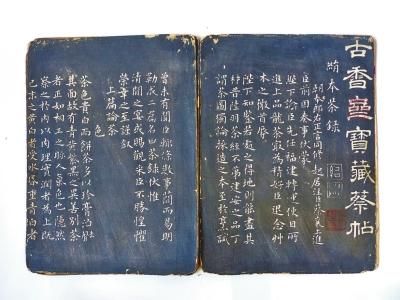 古香齋寶藏蔡帖
絹本茶錄
朝奉郎右正言同修起居注臣蔡襄上進
臣前因奏事伏蒙
陛下諭臣先任福建轉運使日所
進上品龍茶最為精好臣退念草
木之微首辱
陛下知鑒若處之得地則能盡其
材昔陸羽茶經不第建安之品丁
謂茶圖獨論採造之本至於烹試
曾未有聞臣輒條數事簡而易明
勒成二篇名曰茶錄伏惟
清閒之宴或賜觀采臣不勝惶懼
榮幸之至謹敘
上篇論茶
色
茶色貴白而餅茶多以珍膏油
其面故有青黃紫黑之異善別茶
者正如相工之視人氣色也隱然
察之於內以肉理實潤者為上既
已末之黃白者受水昏重青白者